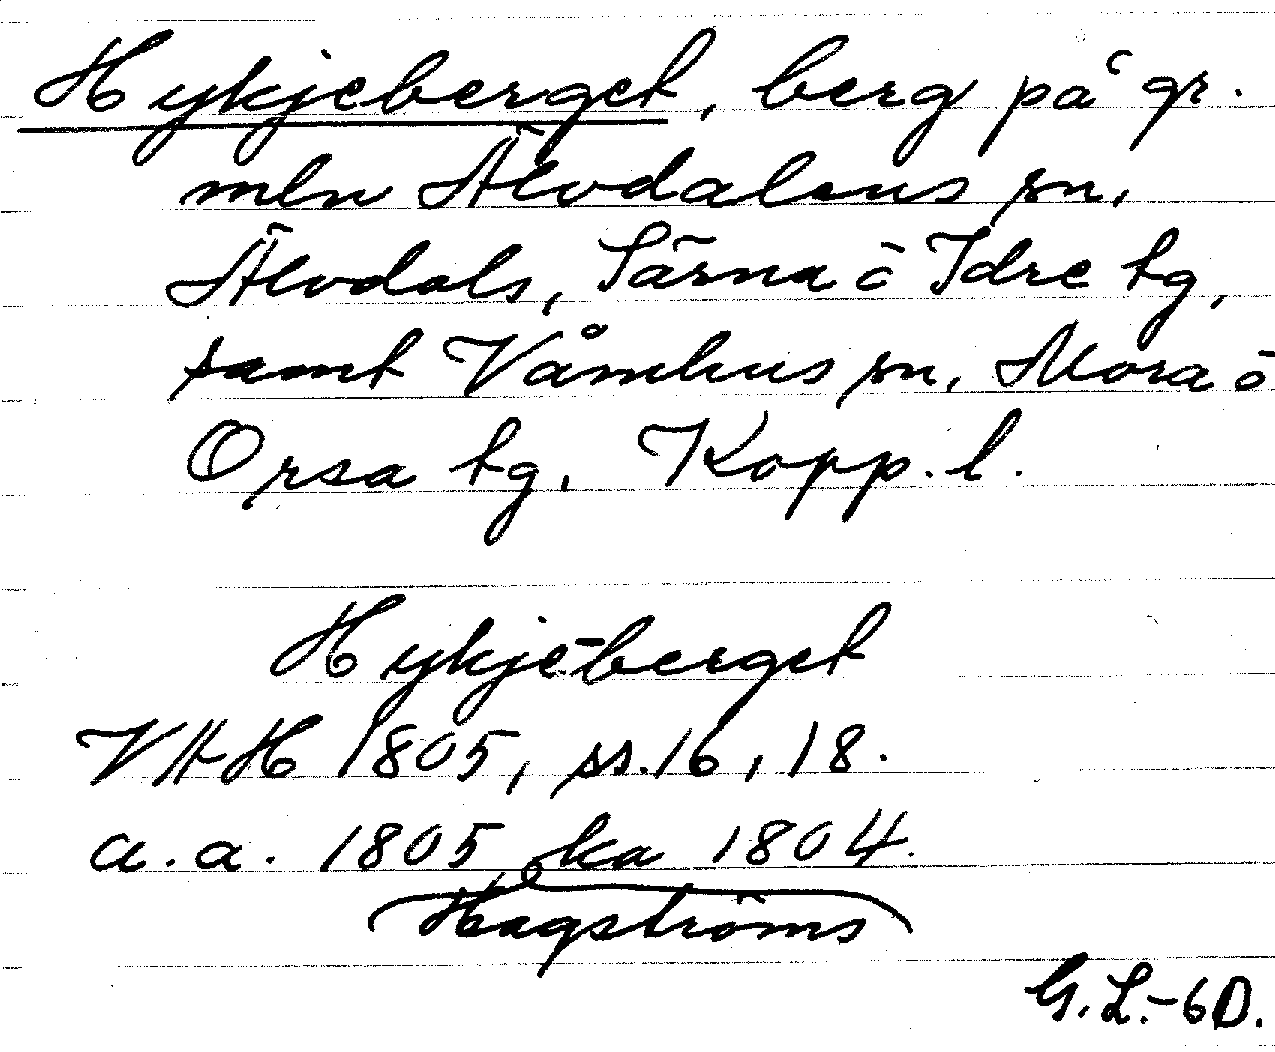 Hykjeberget, berg på gr.
mln Älvdalens sn,
Älvdals, Särna o Idre tg,
samt Våmhus sn, Mora o
Orsa tg. Kopp. l.
Hykje-berget
VHH 1805, ss. 16, 18.
a. a. 1805, ka 1804.
Hagströms
G. L.-60.